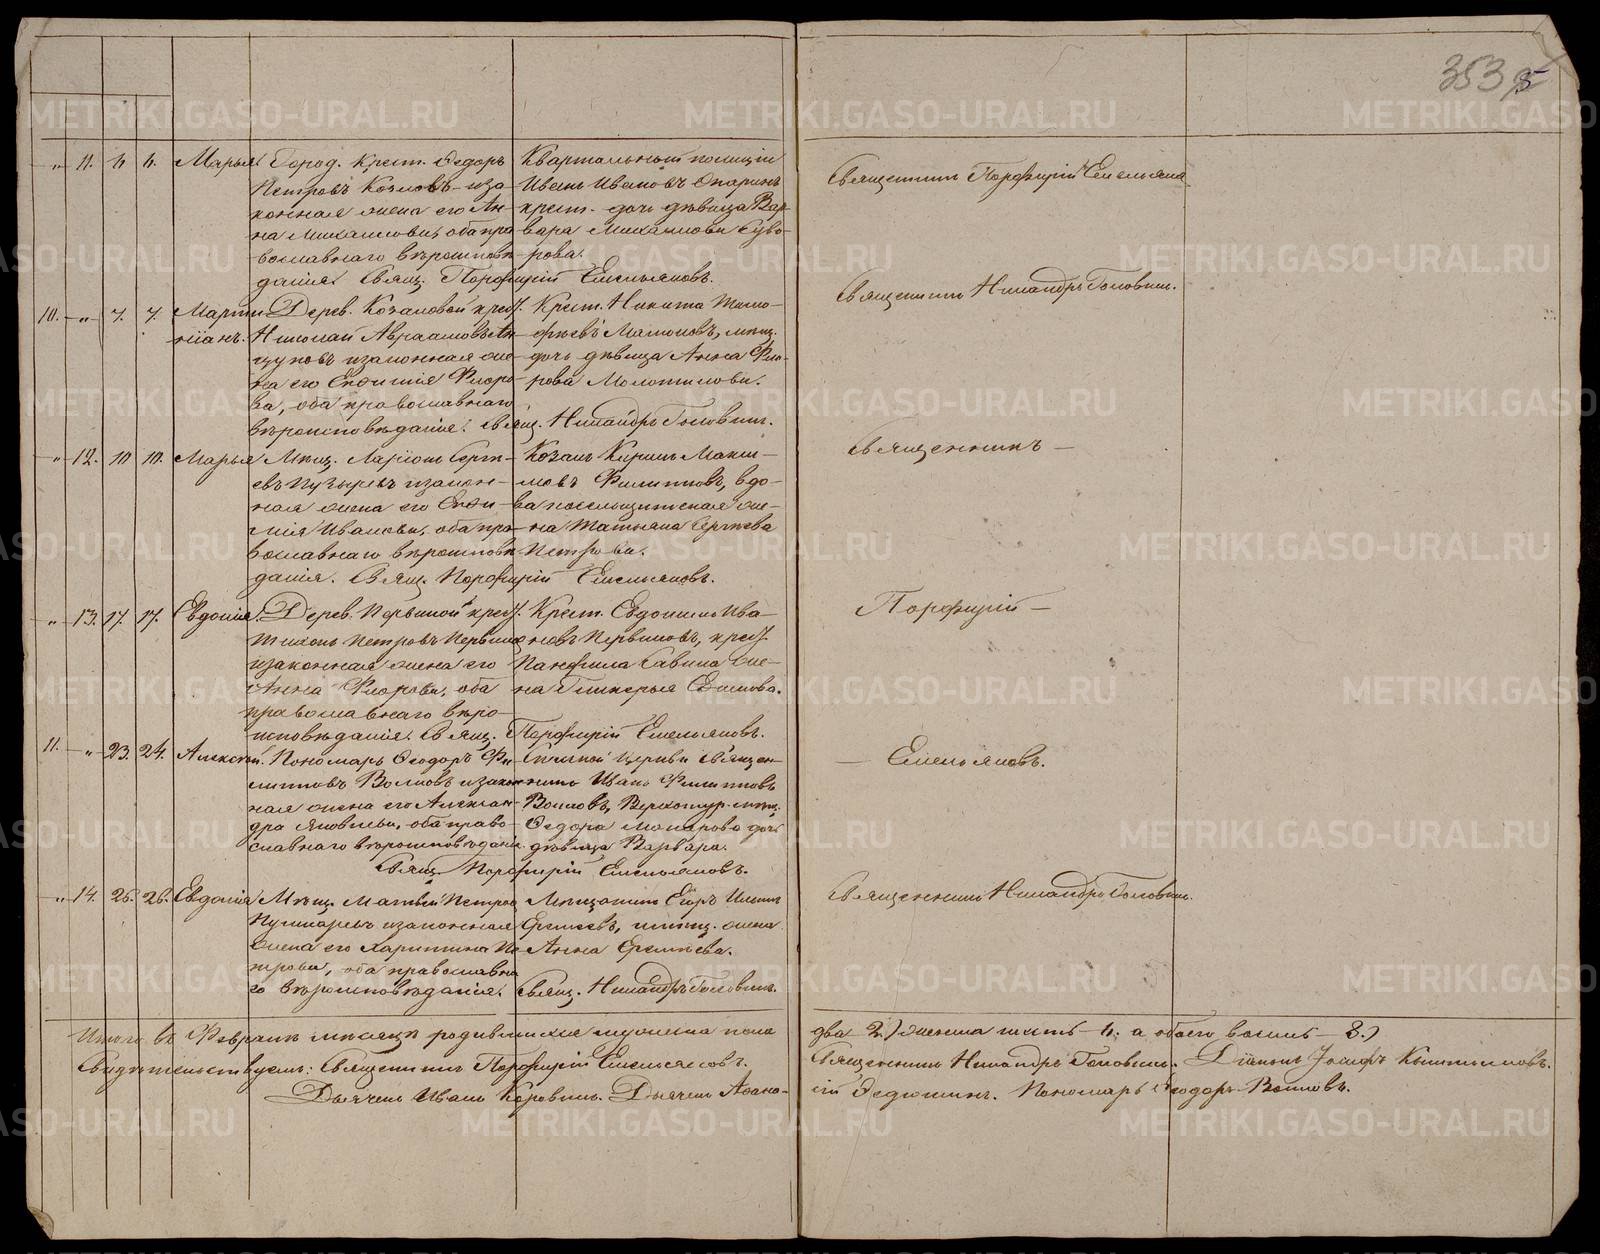 353
„ 11. 6 6. Марья Город. Крест. Ѳедоръ
Петровъ Козловъ иза-
конная жена его Ан-
на Михаилова, оба пра-
вославнаго вѣроисповѣ-
данія. Свящ. Порфирій Емельяновъ.
Квартальный полиціи
Иванъ Ивановъ Опаринъ
крест. дочь дѣвица Вар-
вара Михаилова Суво-
рова.
Священникъ Порфирій Емельяно
10. „ 7. 7. Марти-
ніанъ. Дерев. Козловой крест.
Николай Авраамовъ Ан-
цуповъ и законная же-
на его Евфимія Флоро-
ва, оба православнаго
вѣроисповѣданія. Свящ. Никандръ Головинъ.
Крест. Никита Тимо-
фѣевъ Мамоновъ, мѣщ.
дочь дѣвица Анна Фло-
рова Молотилова.
Священникъ Никандръ Головин.
„ 12. 10 10. Марья Мѣщ. Ларіонъ Сергѣ-
евъ Пузыревъ и закон-
ная жена его Евфи-
мія Иванова, оба пра-
вославнаго вѣроисповѣ-
данія. Свящ. Порфирій Емельяновъ.
Козакъ Кирилъ Макси-
мовъ Филиповъ, вдо-
ва посельщитская же-
на Татьяна Сергѣева
Петрова.
Священникъ —
„ 13. 17. 17. Евдокія. Дерев. Первиной крест.
Тихонъ Петровъ Первинъ
и законная жена его
Анна Флорова, оба
православнаго вѣро-
исповѣданія. Свящ. Порфирій Емельяновъ.
Крест. Евдокимъ Ива-
новъ Первиновъ, крест.
Панфила Савина же-
на Гликерья Єимова.
Порфирій —
11. „ 23. 24. Алексѣй. Пономарь Ѳеодоръ Фи-
липповъ Волковъ и закон-
ная жена его Алексан-
дра Яковлева, оба право-
славнаго вѣроисповѣданія.
Свящ. Порфирій Емельяновъ.
церкви Священ-
никъ Иванъ Филипповъ
Волковъ, Верхотур. мѣщ.
Ѳедора Макарова дочь
дѣвица Варвара.
— Емельяновъ.
„ 14. 26. 26. Евдокія Мѣщ. Матвѣй Петровъ
Пушкаревъ и законная
жена его Харитина Пе-
трова, оба православна-
го вѣроисповѣданія. Свящ. Никандръ Головинъ.
Мѣщанинъ Егоръ Ильинъ
Еремѣевъ, мѣщ. жена
Анна Еремѣева.
Священникъ Никандръ Головин.
Итого въ Февралѣ мѣсяцѣ родившихся мужеска пола два 2.) женска шесть — 6. а обоего восемь — 8.)
Свидѣтельствуемъ: Священникъ Порфирій Емельяновъ. Священникъ Никандръ Головинъ. Діаконъ Іосифъ Кыштымовъ.
Дьячекъ Иванъ Коровинъ. Дьячекъ Афана-сій Ѳедюшинъ. Пономарь Ѳеодоръ Волковъ.
METRIKI.GASO-URAL.RU